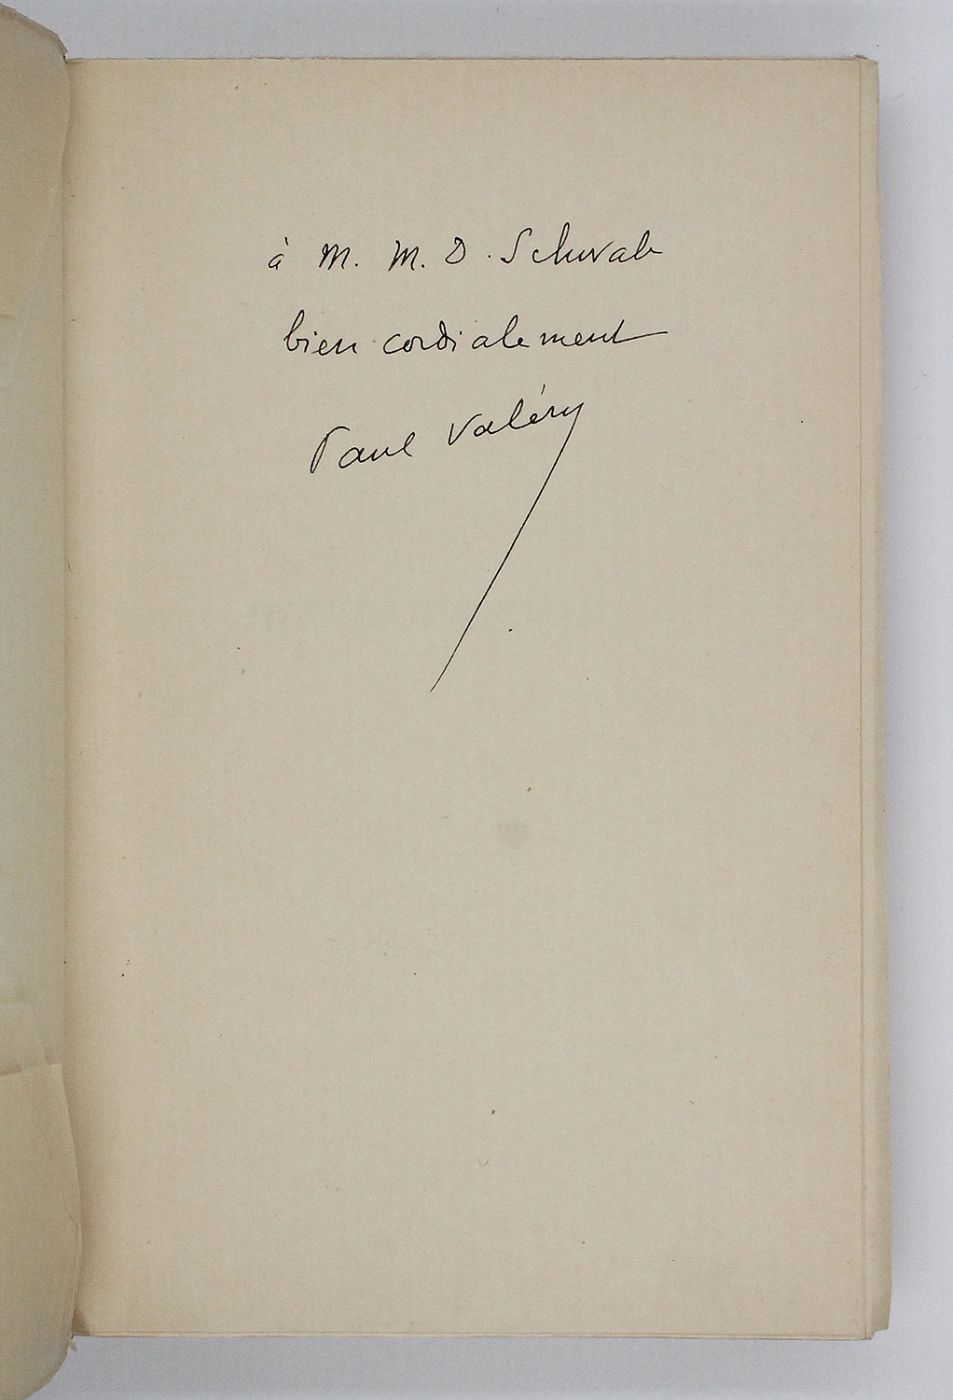 à M. M. D. Schwab
bien cordialement
Paul Valéry